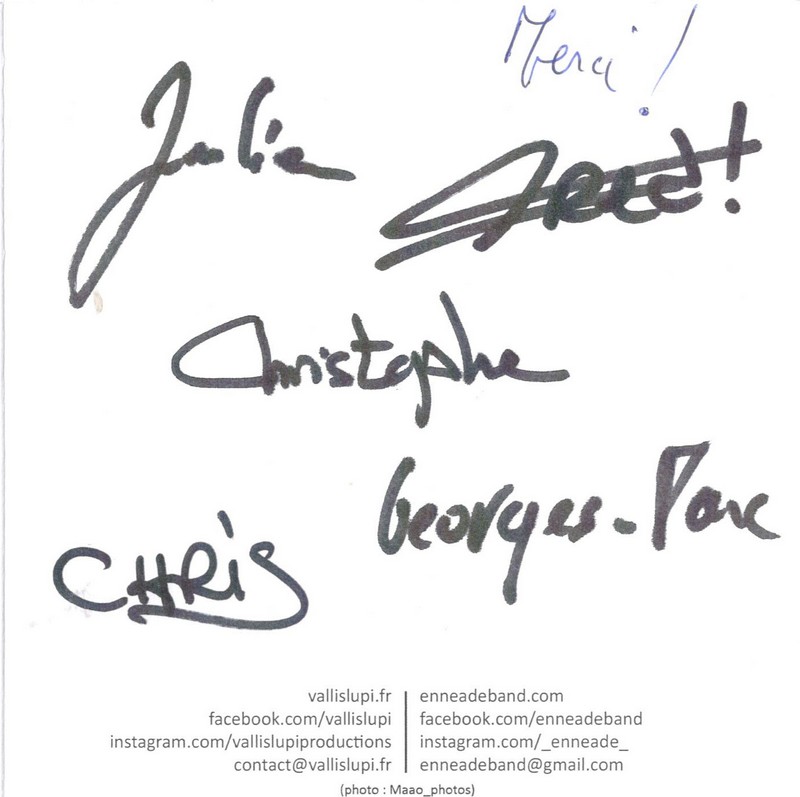 Merci !
Julie
Christophe
Georges-Marc
CHRIS
vallislupi.fr | enneadeband.com
facebook.com/vallislupi | facebook.com/enneadeband
instagram.com/vallislupiproductions | instagram.com/_enneade_
contact@vallislupi.fr | enneadeband@gmail.com
(photo : Maao_photos)